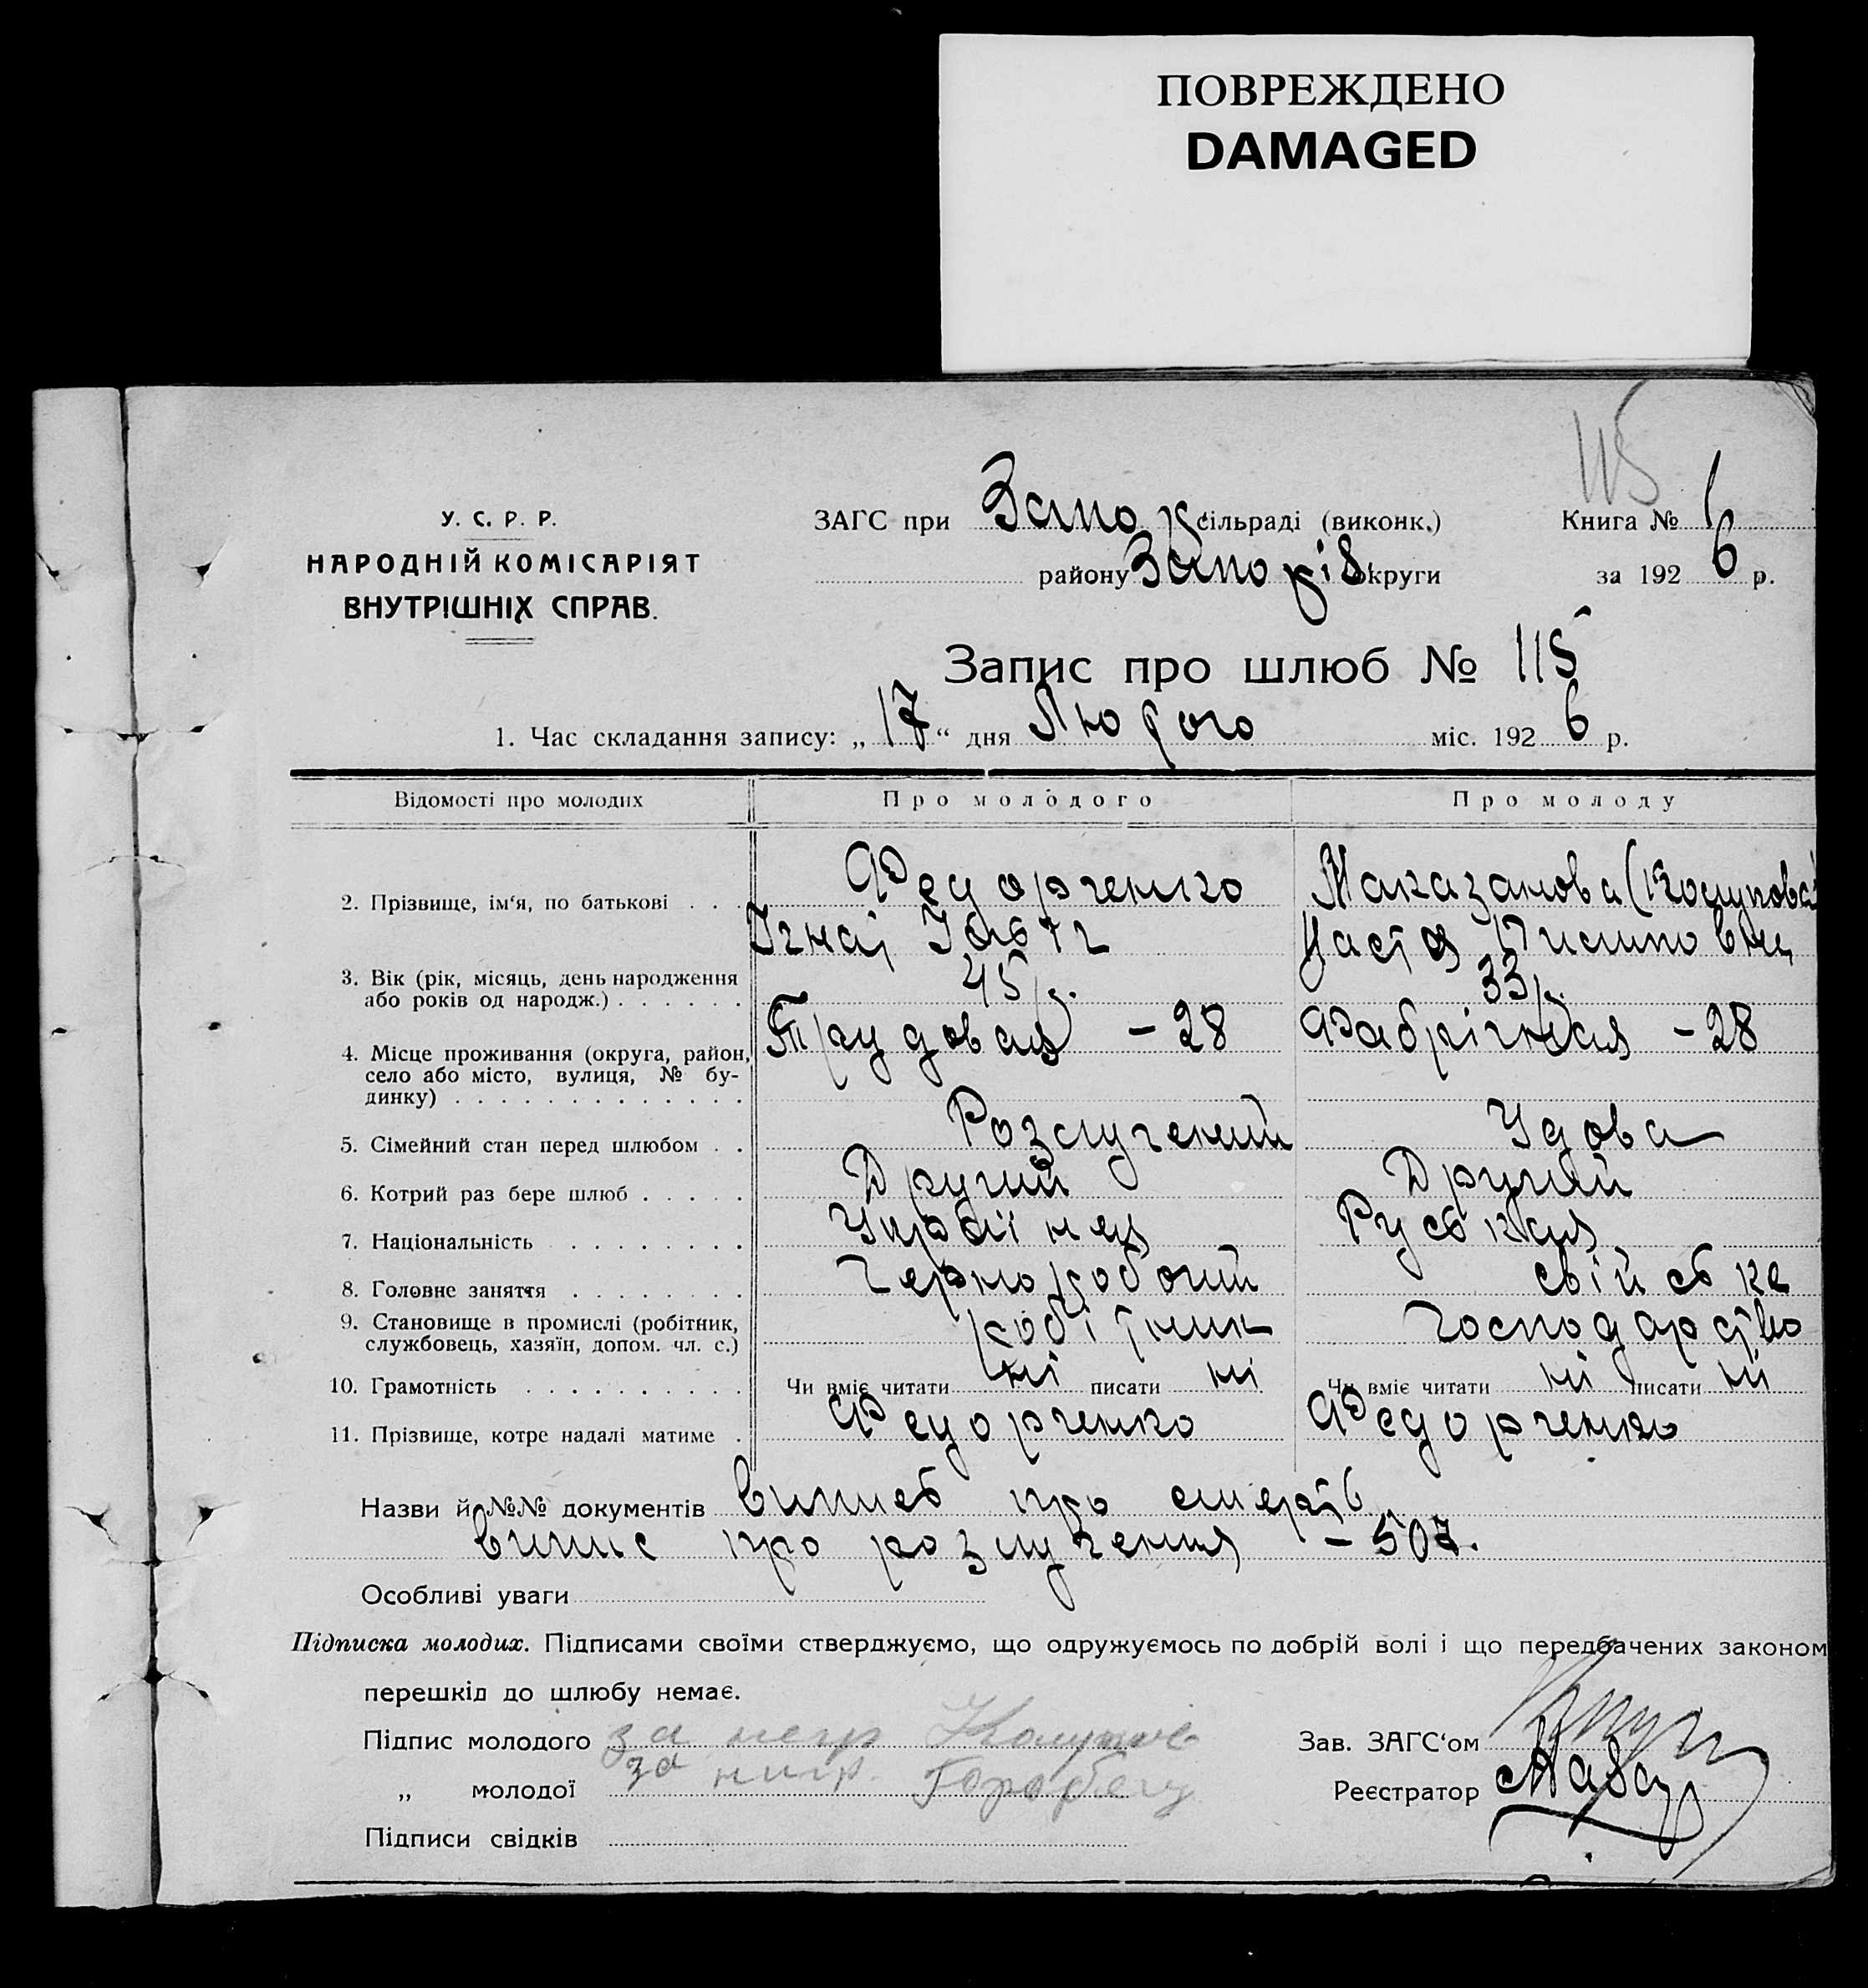 ПОВРЕЖДЕНО
DAMAGED
115
У. С. Р. Р.
НАРОДНІЙ КОМІСАРІЯТ
ВНУТРІШНІХ СПРАВ.
ЗАГС при Запор сільраді (виконк.) Книга №
району Запоріз округи за 1926 р.
Запис про шлюб № 115
1. Час складання запису: „17“ дня Лютого міс. 1926 р.
Відомості про молодих Про молодого Про молоду
2. Прізвище, ім‘я, по батькові . . . Федорченко
Ігнат Настя
3. Вік (рік, місяць, день народження або років од народж.) . . . . . . 45 р. 33 р.
4. Місце проживання (округа, район, село або місто, вулиця, № будинку) . . . . . . . . . . . . . Трудовая - 28 Фабрічная - 28
5. Сімейний стан перед шлюбом . . Розлучений Удова
6. Котрий раз бере шлюб . . . . . Другий Другий
7. Національність . . . . . . . . Українец Руська
8. Головне заняття . . . . . . . . Черноробочий свійське
9. Становище в промислі (робітник, службовець, хазяїн, допом. чл. с.) робітник господарство
10. Грамотність . . . . . . . . . . Чи вміє читати ні писати ні Чи вміє читати ні писати ні
11. Прізвище, котре надалі матиме . Федорченко Федорченко
Назви й №№ документів Випись про смерть
випис про розлучення - 507.
Особливі уваги
Підписка молодих. Підписами своїми стверджуємо, що одружуємось по добрій волі і що передбачених законом
перешкід до шлюбу немає.
Підпис молодого за негр Зав. ЗАГС‘ом
„ молодої за нигр. Горобец Реєстратор
Підписи свідків